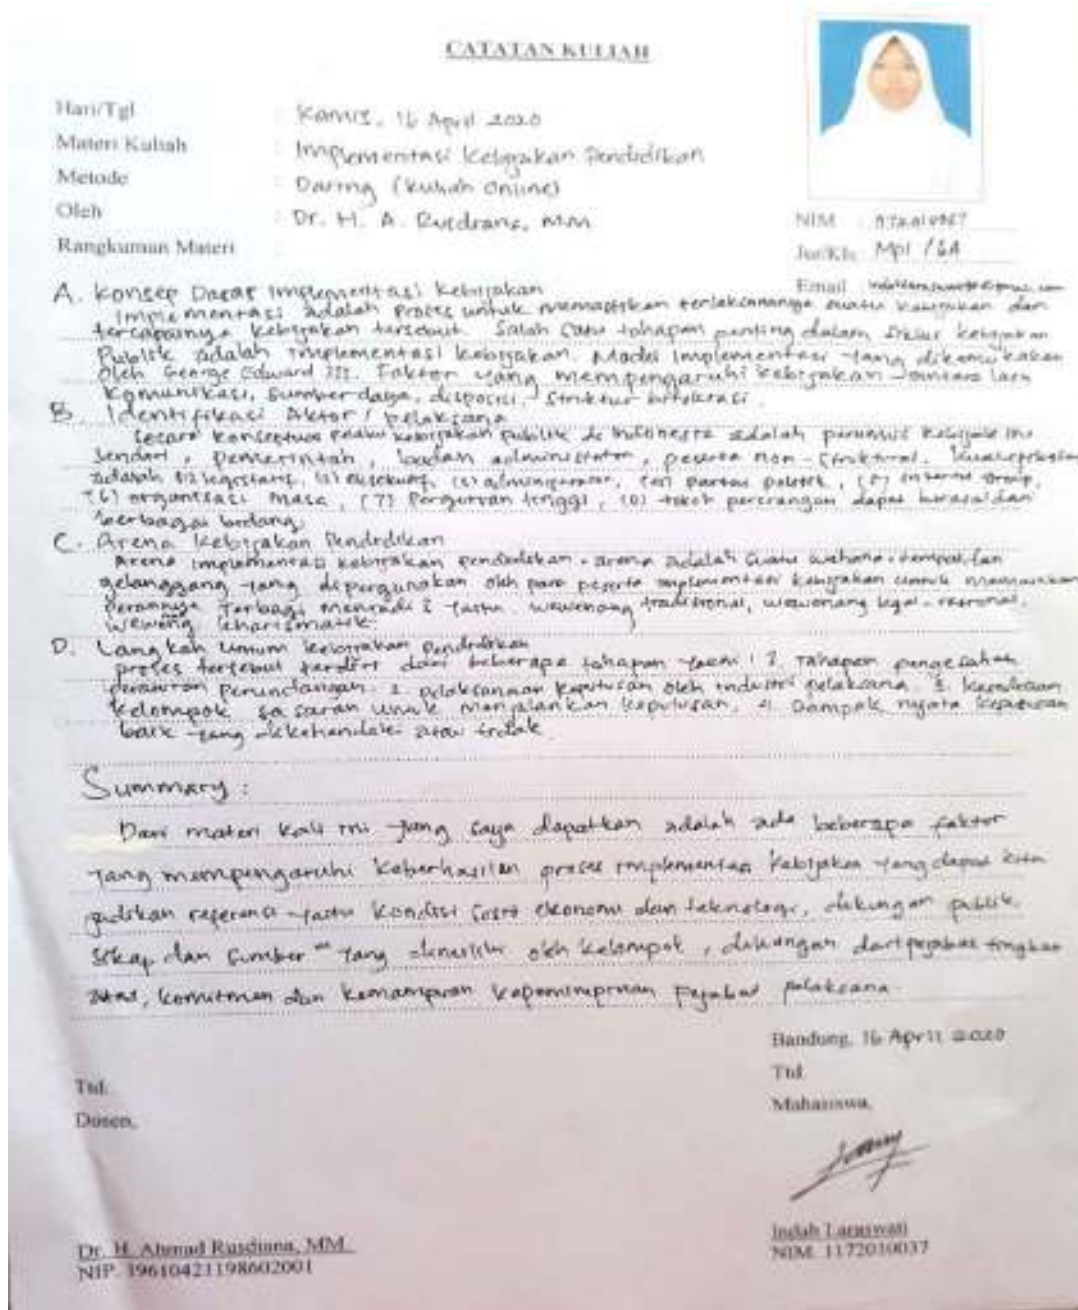 CATATAN KULIAH
Hari/Tgl : Kamis, 16 April 2020
Materi Kuliah : Implementasi Kebijakan Pendidikan
Metode : Daring (kuliah online)
Oleh : Dr. H. A. Rusdiana, MM
Rangkuman Materi
NIM :
Jur/Kls : MPI / 6A
Email :
A. Konsep Dasar Implementasi Kebijakan
Implementasi adalah proses untuk memastikan terlaksananya suatu kebijakan dan
tercapainya kebijakan tersebut. Salah satu tahapan penting dalam siklus kebijakan
Publik adalah implementasi kebijakan. Model implementasi yang dikemukakan
Oleh George Edward III. Faktor yang mempengaruhi kebijakan antara lain
Komunikasi, Sumber daya, disposisi, Struktur birokrasi.
B. Identifikasi Aktor / pelaksana
Secara konseptual pelaku kebijakan publik di Indonesia adalah perumus kebijakan itu
sendiri, pemerintah, badan administrator, peserta non-struktural.
adalah (1) legislatif, (2) eksekutif, (3) administrator, (4) partai politik, (5)
(6) organisasi masa, (7) Perguruan tinggi, (8) tokoh perorangan dapat berasal dari
berbagai bidang.
C. Arena Kebijakan Pendidikan
Arena implementasi kebijakan pendidikan. arena adalah suatu wahana, tempat dan
gelanggang yang dipergunakan oleh para peserta implementasi kebijakan untuk memainkan
perannya. Terbagi menjadi yaitu wewenang tradisional, wewenang legal-rasional,
kharismatik.
D. Langkah Umum kebijakan Pendidikan
proses tersebut terdiri dari beberapa tahapan yakni : Tahapan pengesahan
peraturan perundangan. 2. pelaksanaan keputusan oleh pelaksana. 3. kesediaan
kelompok sasaran untuk menjalankan keputusan, 4. Dampak nyata keputusan
baik yang dikehendaki atau tidak.
Summary :
Dari materi kali ini yang saya dapatkan adalah ada beberapa faktor
yang mempengaruhi keberhasilan proses implementasi kebijakan yang dapat kita
jadikan referensi yaitu kondisi sosio ekonomi dan teknologi, dukungan publik,
sikap dan sumber" yang dimiliki oleh kelompok, dukungan dari pejabat tingkat
atas, komitmen dan kemampuan kepemimpinan pejabat pelaksana.
Bandung, 16 April 2020
Ttd.
Ttd
Dosen,
Mahasiswa,
Dr. H. Ahmad Rusdiana, MM
NIP. 19610421198602001
Indah Laraswati
NIM. 1172010037